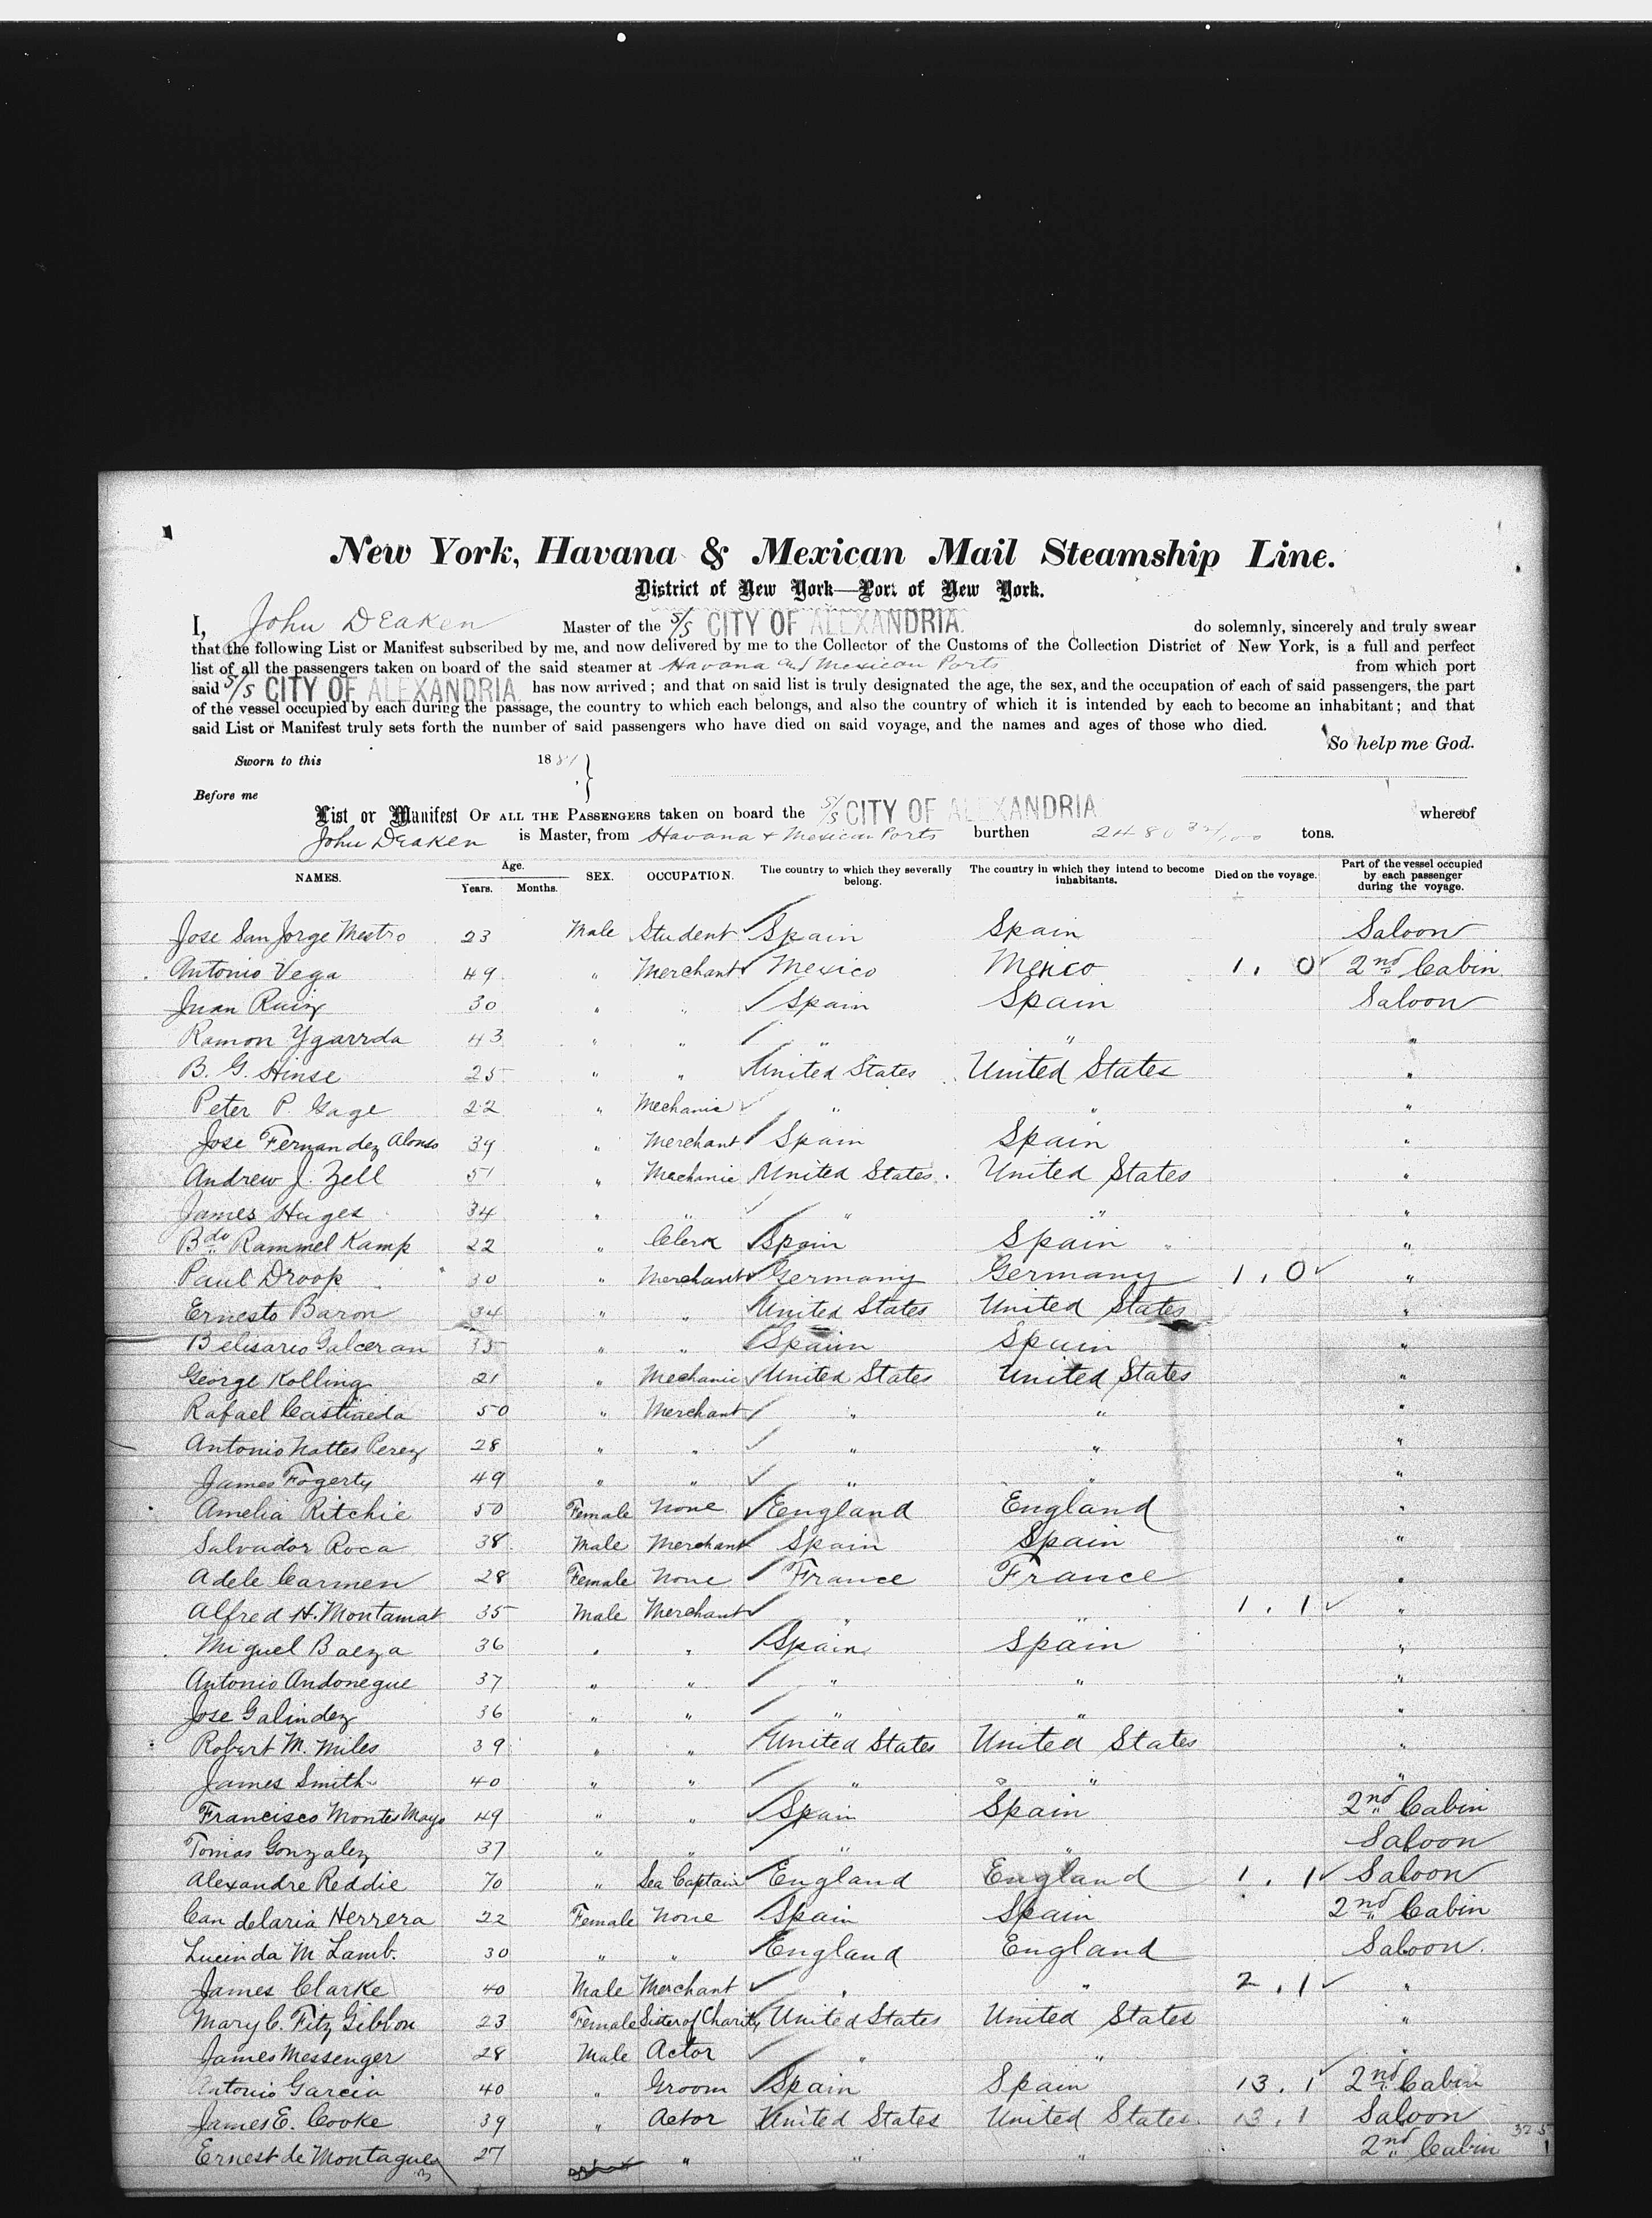 New York, Havana & Mexican Mail Steamship Line.
District of New York—Port of New York.
I, John Deaken Master of the S/S CITY OF ALEXANDRIA. do solemnly, sincerely and truly swear
that the following List or Manifest subscribed by me, and now delivered by me to the Collector of the Customs of the Collection District of New York, is a full and perfect
list of all the passengers taken on board of the said steamer at Havana and Mexican Ports from which port
said S/S CITY OF ALEXANDRIA has now arrived; and that on said list is truly designated the age, the sex, and the occupation of each of said passengers, the part
of the vessel occupied by each during the passage, the country to which each belongs, and also the country of which it is intended by each to become an inhabitant; and that
said List or Manifest truly sets forth the number of said passengers who have died on said voyage, and the names and ages of those who died.
So help me God.
Sworn to this 1881
Before me
List or Manifest OF ALL THE PASSENGERS taken on board the S/S CITY OF ALEXANDRIA whereof
John Deaken is Master, from Havana & Mexican Ports burthen 2480 tons.
NAMES. Age. Years. Months. SEX. OCCUPATION. The country to which they severally belong. The country in which they intend to become inhabitants. Died on the voyage. Part of the vessel occupied by each passenger during the voyage.
Jose San Jorge Mestro 23 Male Student Spain Spain Saloon
Antonio Vega 49 " Merchant Mexico Mexico 1. 0 2nd Cabin
Juan Ruiz 30 " " Spain Spain Saloon
Ramon Ygarrda 43 " " " " "
B. G. Hinse 25 " " United States United States "
Peter P. Gage 22 " Mechanic " " "
Jose Fernandez Alonso 39 " Merchant Spain Spain "
Andrew J. Zell 51 " Mechanic United States. United States "
James Huges 34 " " " " "
Bdo Rammel Kamp 22 " Clerk Spain Spain "
Paul Droop 30 " Merchant Germany Germany 1. 0 "
Ernesto Baron 34 " " United States United States "
Belisario Galceran 35 " " Spain Spain "
George Kolling 21 " Mechanic United States United States "
Rafael Castineda 50 " Merchant " " "
Antonio Nattes Perez 28 " " " " "
James Fogerty 49 " " " " "
Amelia Ritchie 50 Female None England England "
Salvador Roca 38 Male Merchant Spain Spain "
Adele Carmen 28 Female None France France "
Alfred H. Montamat 35 Male Merchant " " 1. 1 "
Miguel Baeza 36 " " Spain Spain "
Antonio Andonegue 37 " " " " "
Jose Galindez 36 " " " " "
Robert M. Miles 39 " " United States United States "
James Smith 40 " " " " "
Francisco Montes Mayo 49 " " Spain Spain 2nd Cabin
Tomas Gonzalez 37 " " " " Saloon
Alexandre Reddie 70 " Sea Captain England England 1. 1 Saloon
Candelaria Herrera 22 Female None Spain Spain 2nd Cabin
Lucinda M Lamb. 30 " " England England Saloon.
James Clarke 40 Male Merchant " " 2. 1 "
Mary C. Fitz Gibbon 23 Female Sister of Charity United States United States "
James Messenger 28 Male Actor " " "
Antonio Garcia 40 " Groom Spain Spain 13. 1 2nd Cabin
James E. Cooke 39 " Actor United States United States. 13. 1 Saloon
Ernest de Montague 27 " " " 2nd Cabin